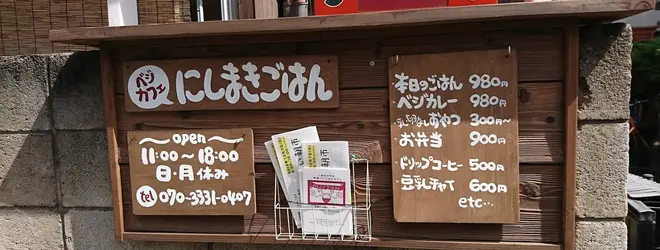 ベジカフェ
にしまきごはん
open
11:00〜18:00
日・月休み
tel 070-3331-0407
本日のごはん 980円
ベジカレー 980円
乳・卵なしおやつ 300円〜
お弁当 900円
ドリップコーヒー 500円
豆乳チャイ 600円
etc…